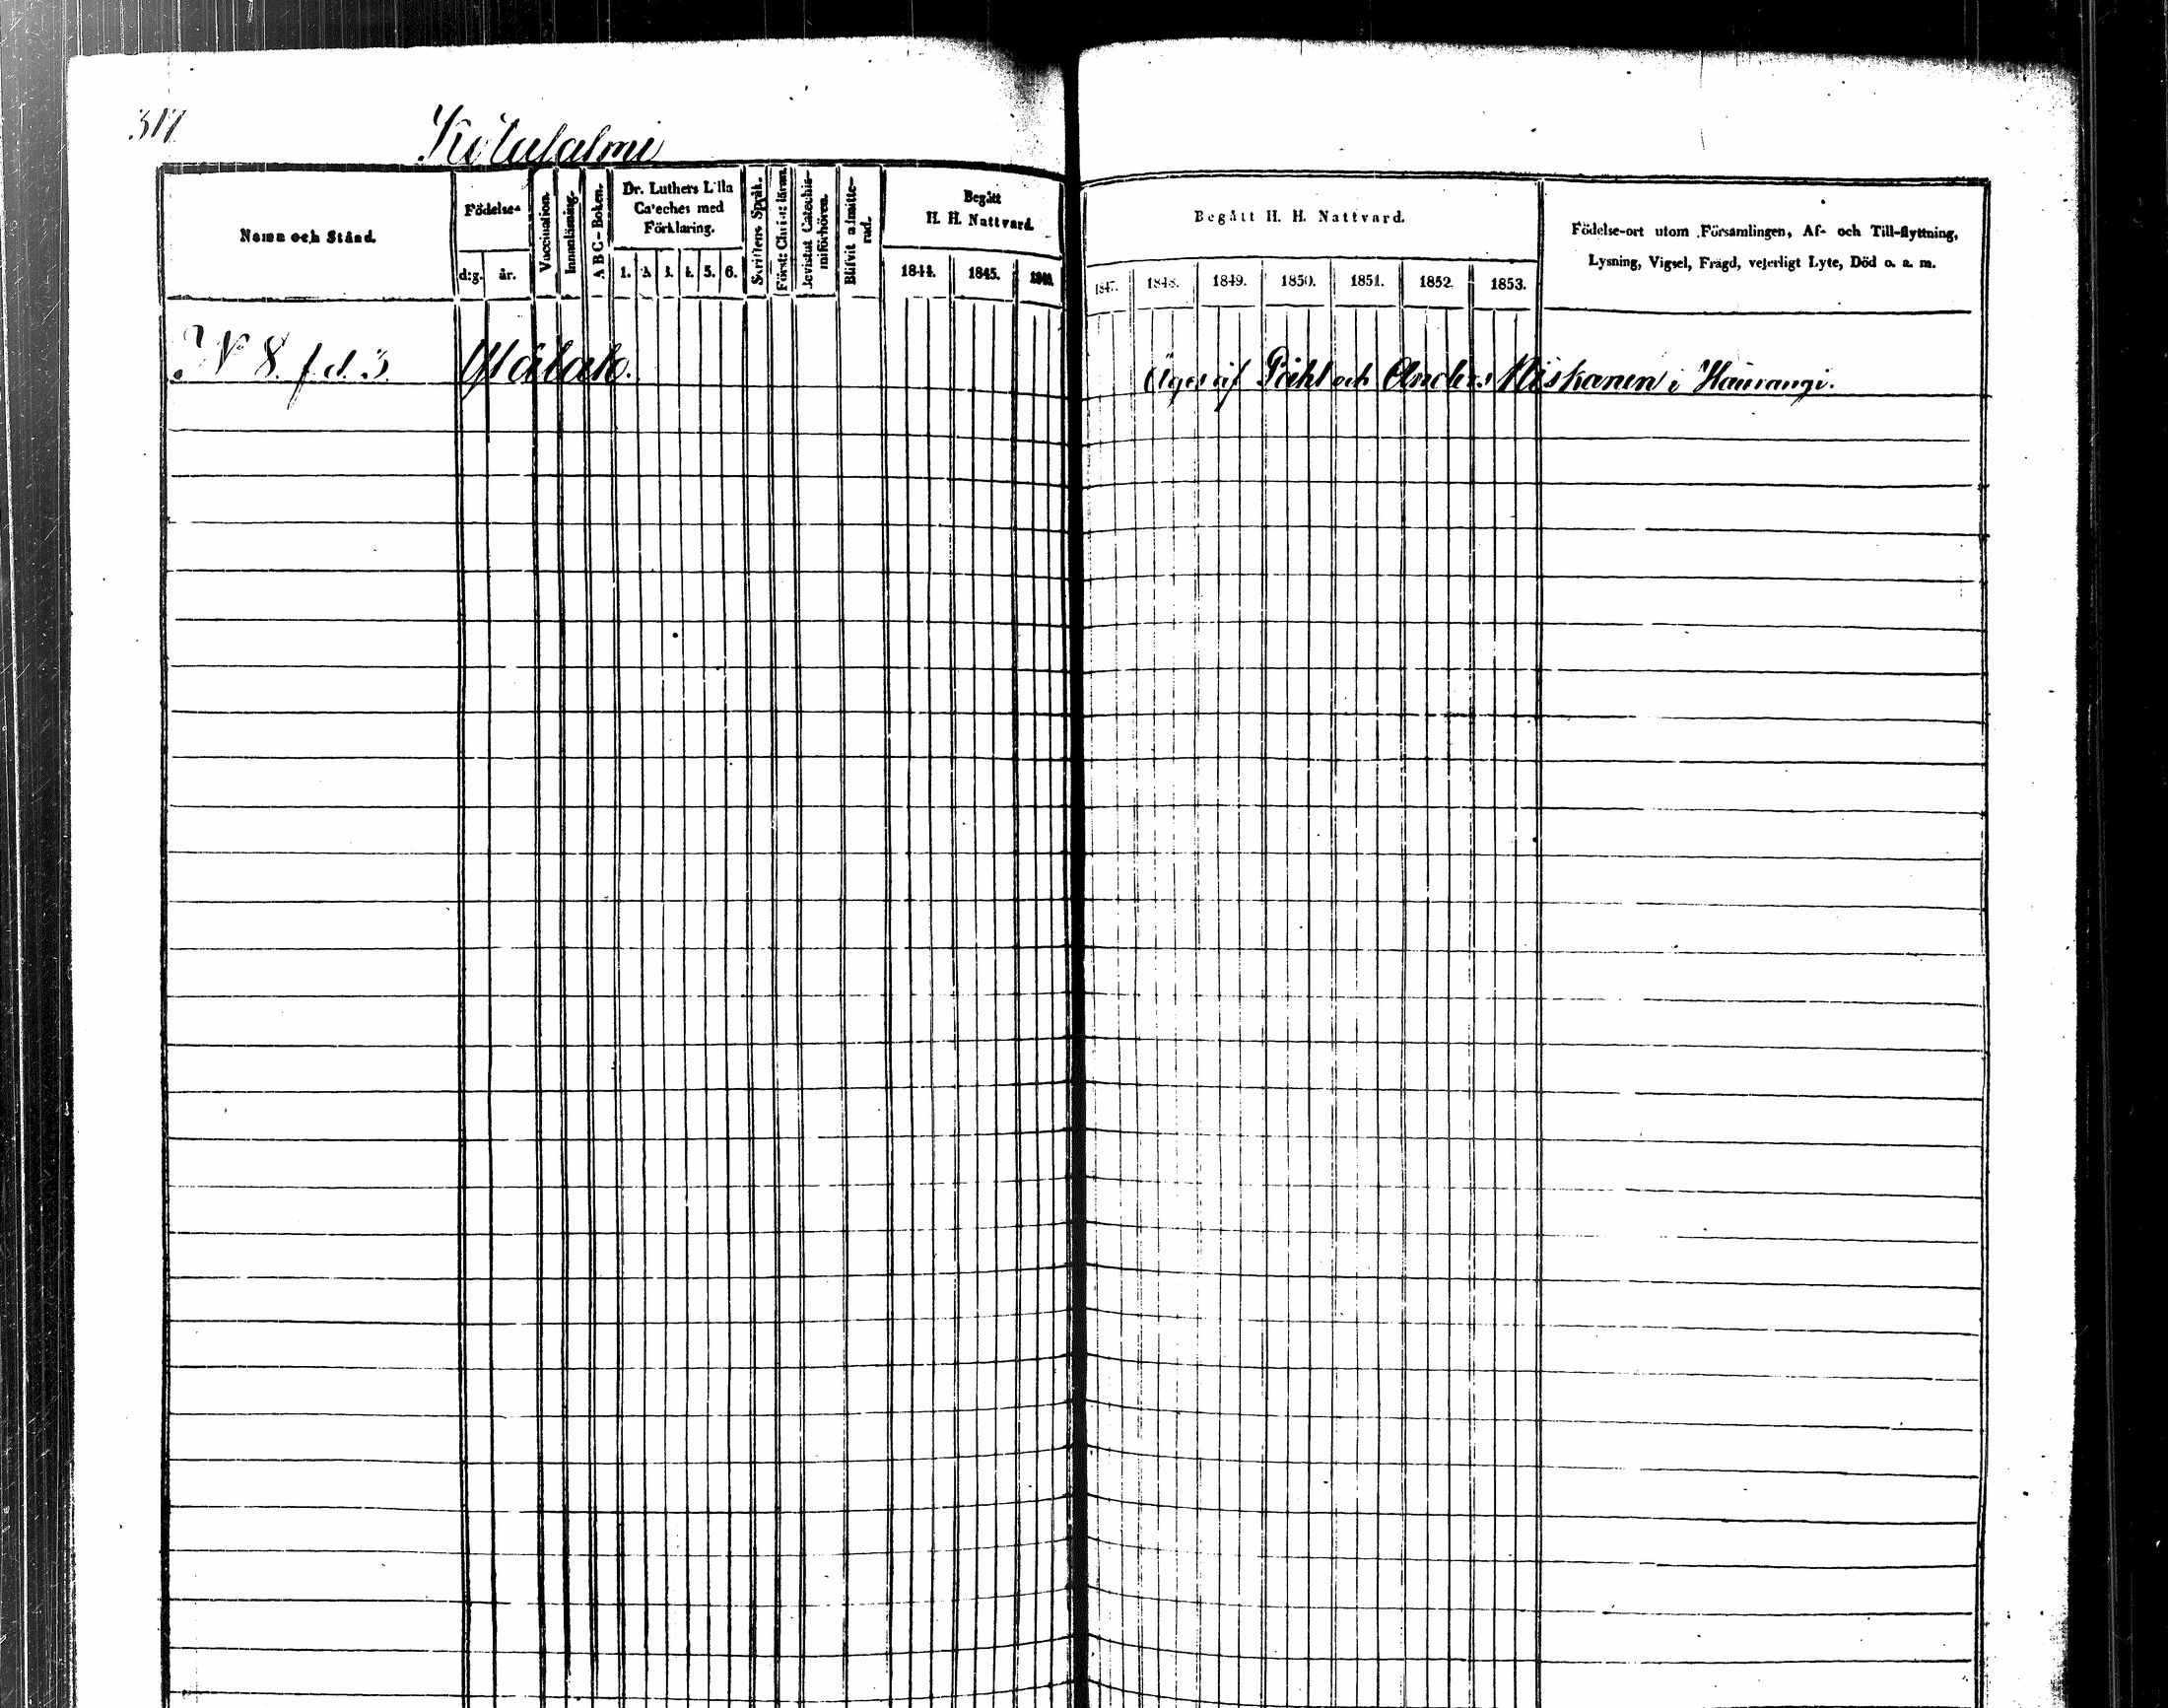 317
Kotasalmi
Namn och Stånd.
Födelse-
dag.
år.
Vaccination.
Innanläsning.
A B C-Boken.
Dr. Luthers Lilla
Cateches med
Förklaring.
1. 2. 3. 4. 5. 6.
Skriftens Språk.
Förstr Christ: läran.
Bevistat Catechis-
miförhören.
Blifvit admitte-
rad.
Begått
H. H. Nattvard.
1844. 1845. 1846.
Begått H. H. Nattvard.
1847. 1848. 1849. 1850. 1851. 1852 1853.
Födelse-ort utom Församlingen, Af- och Till-flyttning,
Lysning, Vigsel, Frägd, vejerligt Lyte, Död o. a. m.
N 8. f. d. 3.
Äges af Påhl och Anders Niskanen i